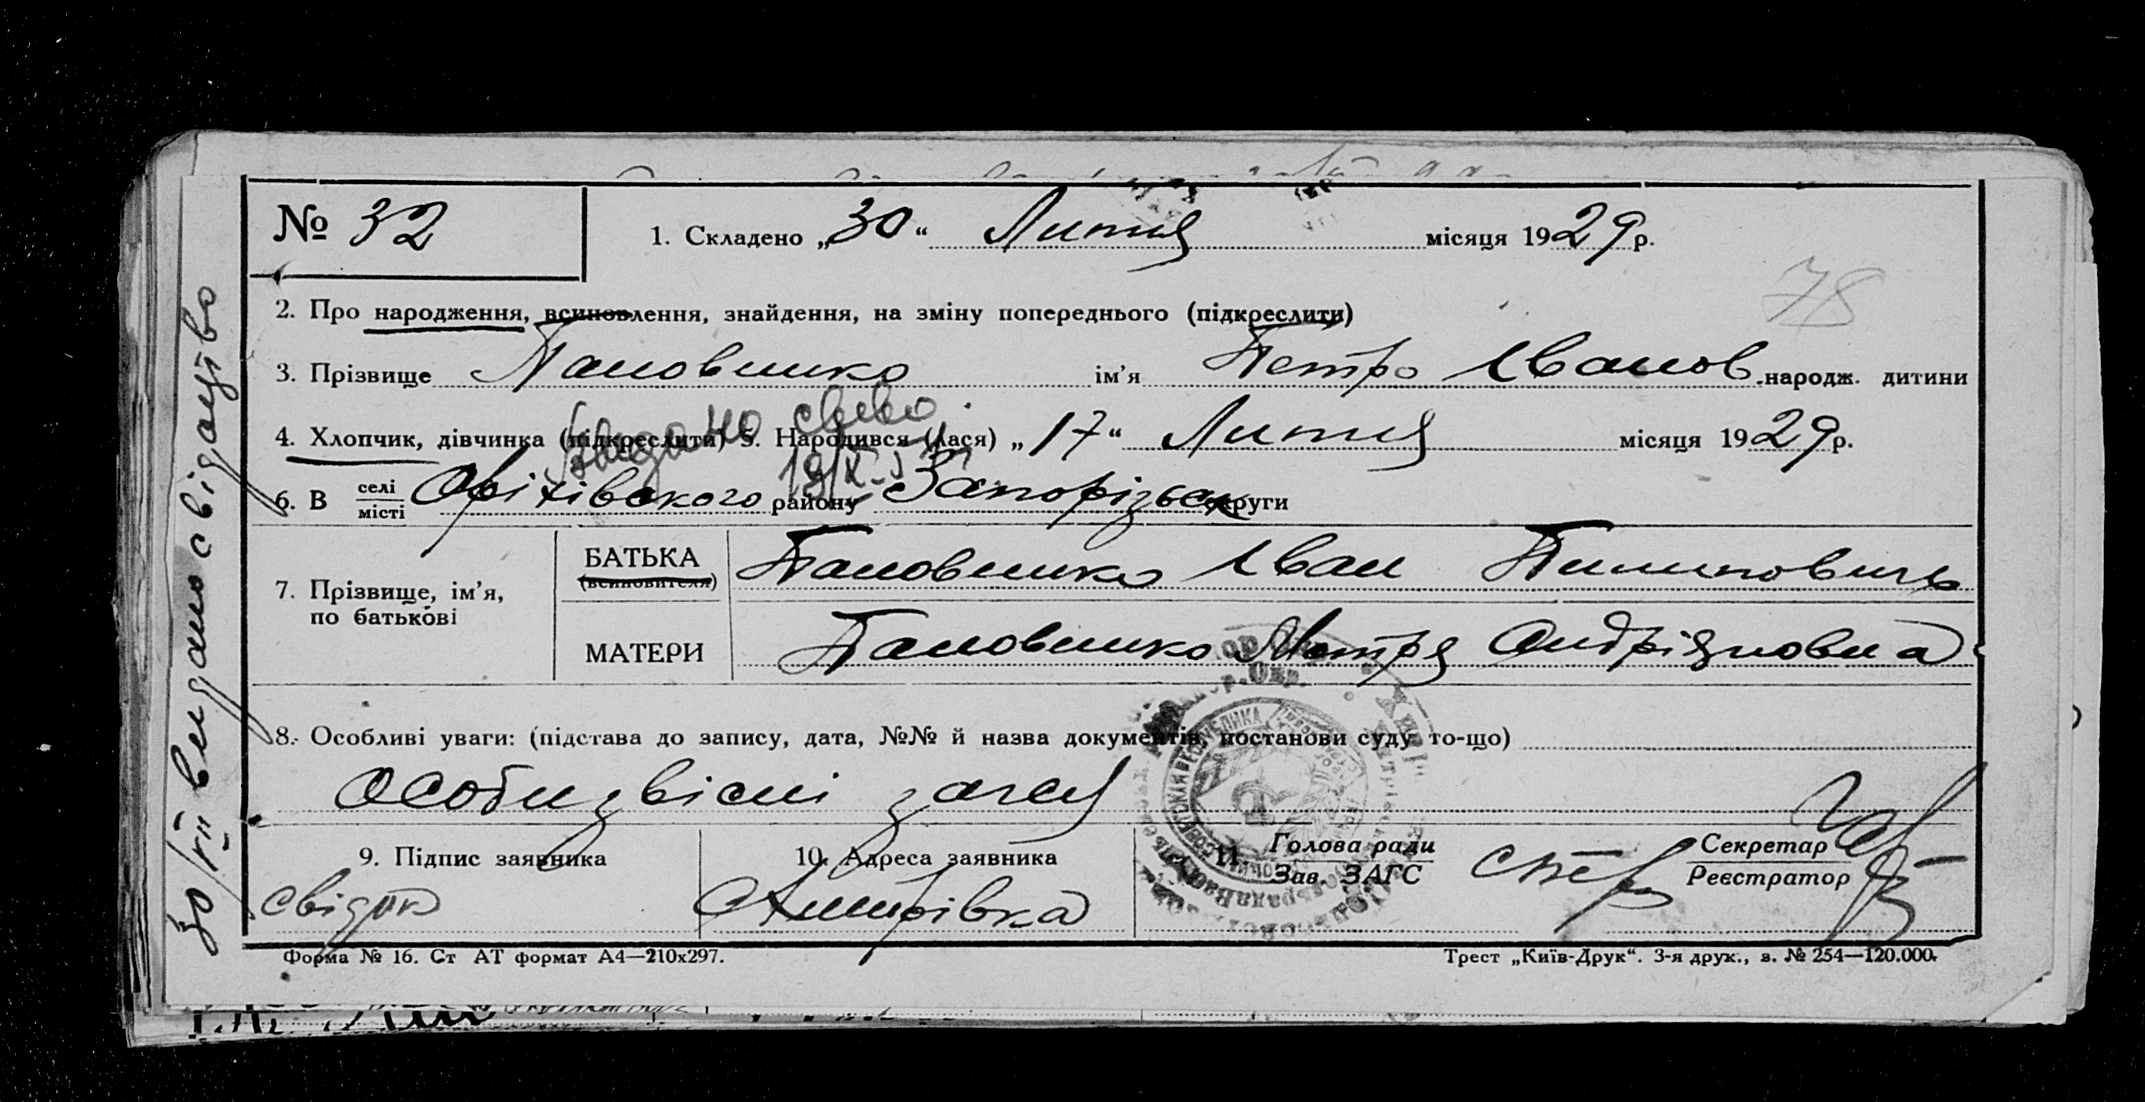 № 32
1. Складено „30“ Липня місяця 1929 р.
78
2. Про народження, всиновлення, знайдення, на зміну попереднього (підкреслити)
3. Прізвище Пановшко ім’я Петро Іванов народж. дитини
4. Хлопчик, дівчинка (підкреслити) 5. Народився (лася) „17“ Липня місяця 1929 р.
6. В селі місті Оріхівского району Запорізьск округи
7. Прізвище, ім’я, по батькові
БАТЬКА (всиновителя) Пановшко Іван Пилипович
МАТЕРИ Пановшко Мотря Андріяновна
8. Особливі уваги: (підстава до запису, дата, №№ й назва документів, постанови суду то-що)
особи звісні загсу
9. Підпис заявника
свідок
10. Адреса заявника
11. Голова ради
Зав. ЗАГС
Секретар
Реєстратор
Форма № 16. Ст АТ формат А4—210х297.
Трест „Київ-Друк“. 3-я друк., з. № 254—120.000.
30/VII видано свідоцтво